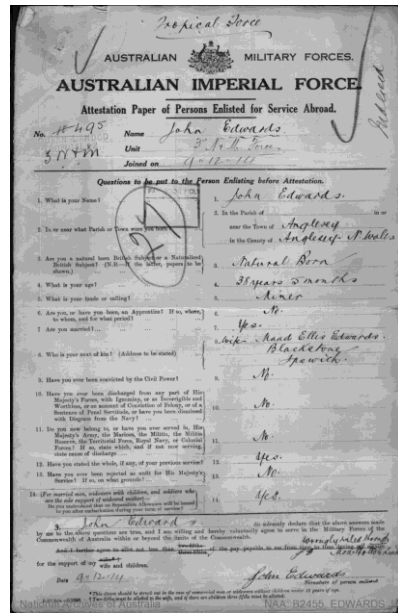 Tropical Force
AUSTRALIAN MILITARY FORCES.
AUSTRALIAN IMPERIAL FORCE.
Attestation Paper of Persons Enlisted for Service Abroad.
No. 495 Name John Edwards
Unit
Joined on 9-12-14
Questions to be put to the Person Enlisting before Attestation.
1. What is your Name? 1. John Edwards
2. In or near what Parish or Town were you born? 2. In the Parish of in or
near the Town of Anglesey
in the County of Anglesey N Wales
3. Are you a natural born British Subject or a Naturalised
British Subject? (N.B.—If the latter, papers to be
shown.) 3. Natural Born
4. What is your age? 4. 38 years 5 months
5. What is your trade or calling? 5. Miner
6. Are you, or have you been, an Apprentice? If so, where,
to whom, and for what period? 6. No.
7. Are you married? 7. Yes.
8. Who is your next of kin? (Address to be stated) 8. Wife Maud Ellis Edwards
Blackstone
Ipswich
9. Have you ever been convicted by the Civil Power? 9. No.
10. Have you ever been discharged from any part of His
Majesty's Forces, with Ignominy, or as Incorrigible and
Worthless, or on account of Conviction of Felony, or of a
Sentence of Penal Servitude, or have you been dismissed
with Disgrace from the Navy? 10. No.
11. Do you now belong to, or have you ever served in, His
Majesty's Army, the Marines, the Militia, the Militia
Reserve, the Territorial Force, Royal Navy, or Colonial
Forces? If so, state which, and if not now serving,
state cause of discharge 11. No.
12. Have you stated the whole, if any, of your previous service? 12. Yes.
13. Have you ever been rejected as unfit for His Majesty's
Service? If so, on what grounds? 13. No
14. (For married men, widowers with children, and soldiers who
are the sole support of widowed mother)—
Do you understand that no Separation Allowance will be issued
to you after embarkation during your term of service? 14. Yes.
I, John Edwards do solemnly declare that the above answers made
by me to the above questions are true, and I am willing and hereby voluntarily agree to serve in the Military Forces of the
Commonwealth of Australia within or beyond the limits of the Commonwealth.
And I further agree to allot not less than of the pay payable to me from time to time during my service
for the support of my wife and children.
Date 9-12-14 John Edwards
Signature of person enlisted.
National Archives of Australia NAA: B2455, EDWARDS J